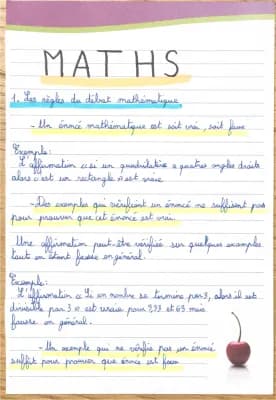 MATHS
1. Les règles du débat mathématique
- Un énoncé mathématique est soit vrai, soit faux
Exemple:
L'affirmation « si un quadrilatère a quatre angles droits
alors c'est un rectangle » est vraie
- Des exemples qui vérifient un énoncé ne suffisent pas
pour prouver que cet énoncé est vrai.
Une affirmation peut-être vérifiée sur quelques exemples
tout en étant fausse en général.
Exemple:
L'affirmation « Si un nombre se termine par 3, alors il est
divisible par 3 » est vraie pour 3,33 et 63 mais
fausse en général.
- Un exemple qui ne vérifie pas un énoncé
suffit pour prouver que énoncé est faux